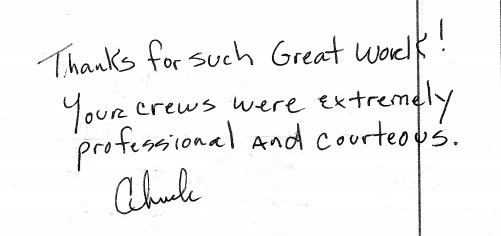 Thanks for such Great Work!
Your crews were extremely
professional and courteous.
Chuck